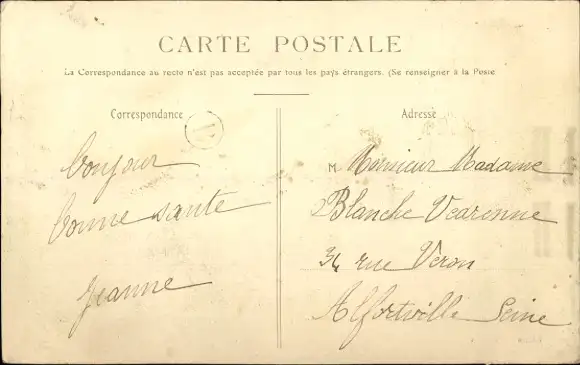 CARTE POSTALE
La Correspondance au recto n'est pas acceptée par tous les pays étrangers. (Se renseigner à la Poste
Correspondance
bonjour
bonne santé
Jeanne
Adresse
M Monsieur Madame
Blanche Vedrenne
34 rue Véron
Alfortville Seine